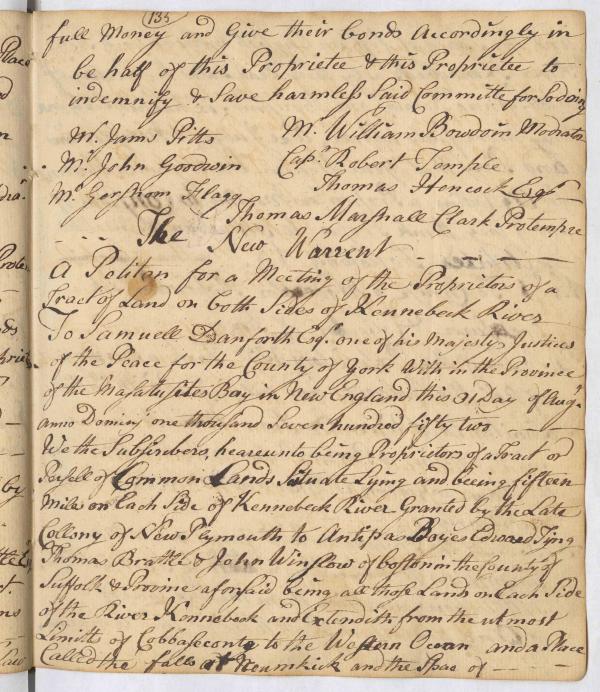 135
full Money and Give their bonds Accordingly in
be half of this Proprietee & this Proprietee to
indemnify & Save harmless Said Committe for So doing
Mr. Jams Pitts Mr. William Bowdoin Modrator
Mr. John Goodwin Capt. Robert Temple
Mr. Gershom Flagg Thomas Hancock Esqr
Thomas Marshall Clark Protempre
The New Warrent
A Politon for a Meeting of the Proprietors of a
Tract of Land on both Sides of Kennebeck River
To Samuell Danforth Esqr. one of his Majesty Justices
of the Peace for the County of York With in the Province
of the Masatusites Bay in New England this 21 Day of Augt.
anno Dominy one thousand Seven hundred fifty two
We the Subscribers, heareunto being Proprietors of a Tract or
Persell of Common Lands Situate Lying and beeing fifteen
Miles on Each Side of Kennebeck River Granted by the Late
Collony of New Plymouth to Antipas Boyes Edward Tyng
Thomas Brattle & John Winslow of boston in the County of
Suffolk & Provine aforsaid being all those Land on Each Side
of the River Kennebeck and Extendith from the ut most
Limitts of Cobbaseconte to the Western Ocean and a Place
Called the falls at Neumkick and the Spac of